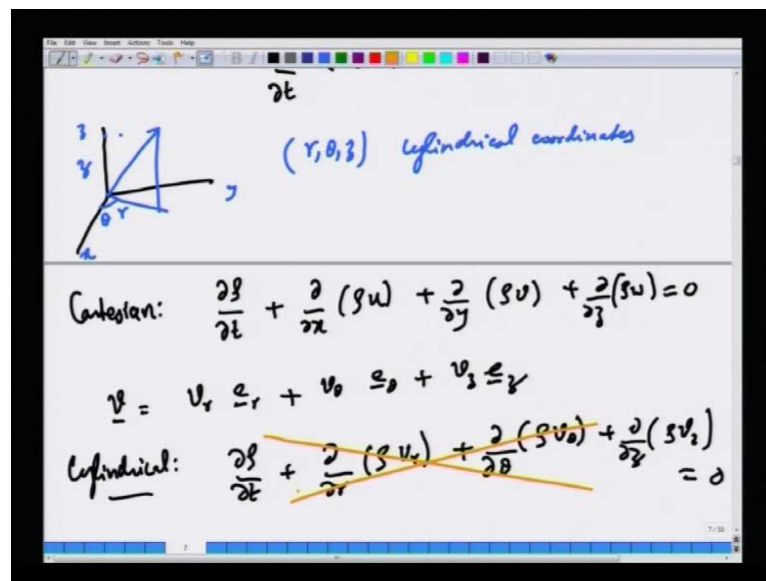 File Edit View Insert Actions Tools Help
B I
∂t
z
z
(r, θ, z) cylindrical coordinates
y
θ r
x
Cartesian: ∂ρ/∂t + ∂/∂x (ρu) + ∂/∂y (ρv) + ∂/∂z (ρw) = 0
v = v_r e_r + v_θ e_θ + v_z e_z
Cylindrical: ∂ρ/∂t + ∂/∂r (ρ v_r) + ∂/∂θ (ρ v_θ) + ∂/∂z (ρ v_z)
= 0
7/33
7